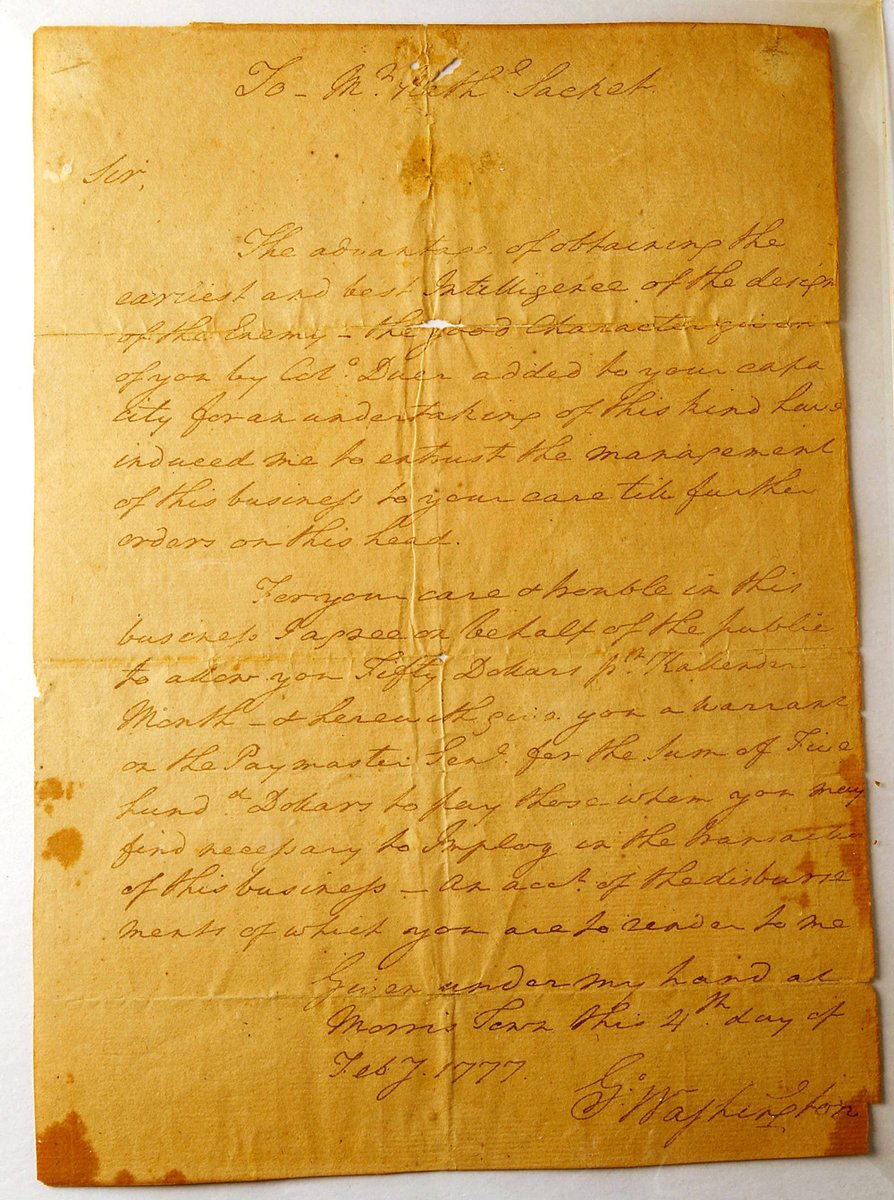 To – Mr. Nathl. Sacket.
Sir,
The advantage of obtaining the
earliest and best Intelligence of the design
of the Enemy – the good Character given
of you by Colo. Duer added to your capa
city for an undertaking of this kind have
induced me to entrust the management
of this business to your care till further
orders on this head.
For your care & trouble in this
business I agree on behalf of the public
to allow you Fifty Dollars pr. Kallender
Month – & herewith give you a warrant
on the Paymaster Genl. for the Sum of Five
hundd. Dollars to pay those whom you may
find necessary to Imploy in the transaction
of this business – An acct. of the disburse
ments of which you are to render to me
Given under my hand at
Morris Town this 4th. day of
Feby. 1777.
Go. Washington